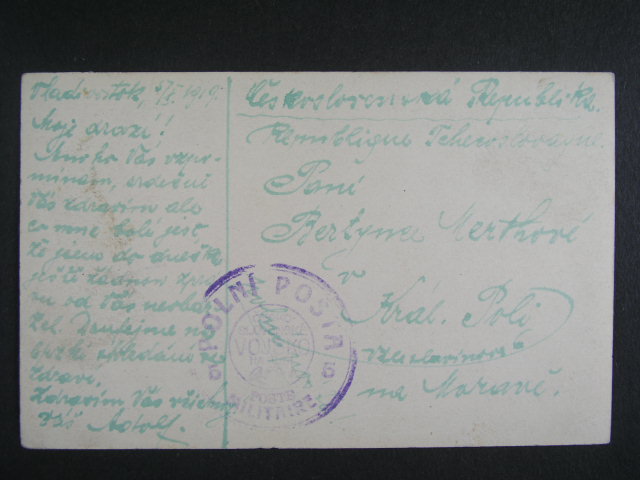 Vladivostok, 5/I. 1919.
Moje drazí!
Mnoho Vás vzpo-
mínám, srdečně
Vás zdravím ale
co mne bolí jest,
že jsem do dneška
ještě žádnou zprá-
vu od Vás neobdr-
žel. Doufejme v
brzké shledání ve
zdraví.
Zdravím Vás všechny
Váš Adolf.
Československá Republika.
République Tchécoslovaque.
Paní
Bertyna Merthové
v
Král. Poli
na Moravě.
POLNÍ POŠTA
6 6
POSTE
MILITAIRE